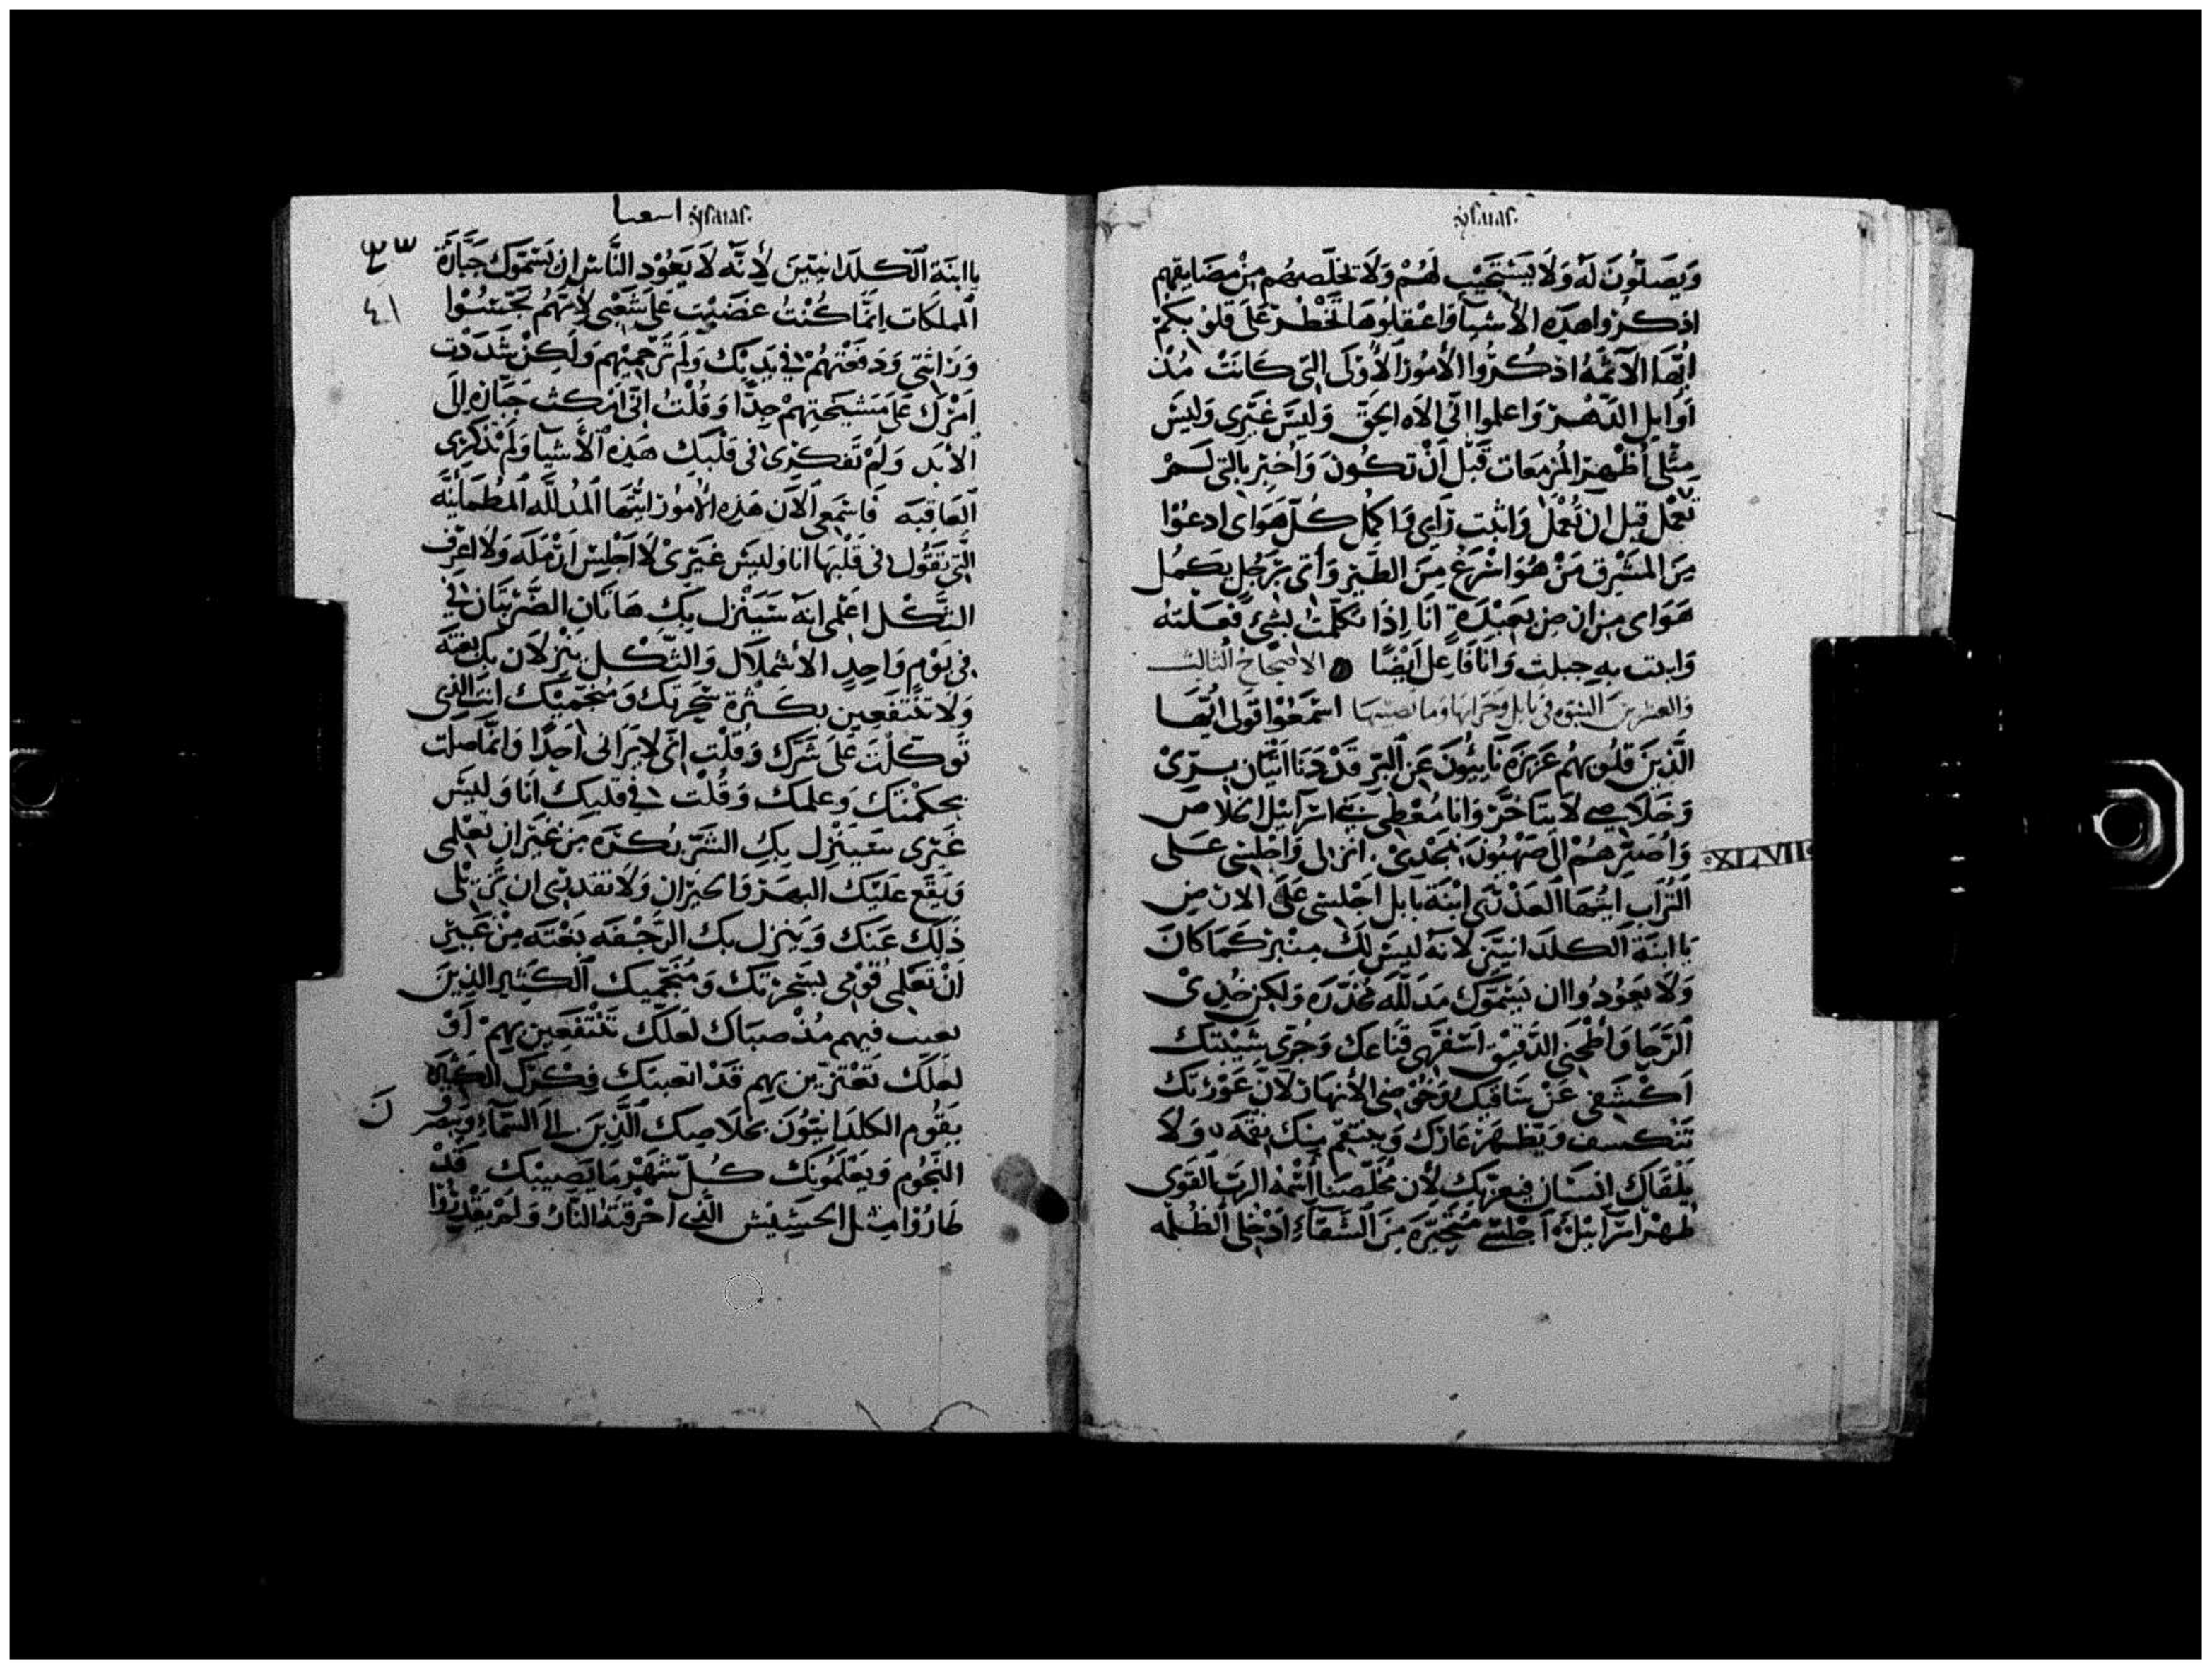 ysaias.
وَيُصَلّونَ لَهُ وَلَا يَسْتَجِيْبُ لَهُمْ وَلَا يخَلّصهُم مِنْ مضَايقهم
اذكرُوا هذِه الأشيآ وَاعْقلُوهَا لتَخْطُرْ عَلَى قلُوبكُمْ
ايُّها الآثمَهُ اذكُرُوا الأمُورَ الأُوْلَى التي كَانَتْ مُنْذ
أوَايل الدّهْر وَاعلموا انّي الاَه الحَقّ وَليسَ غَيْرِي وَليسَ
مِثْلي أظْهر المُزمَعات قَبْل أنْ تكُونَ وَاُخبِر بالتي لَمْ
تُعْمَل قبل ان تُعْمَل وَاثبت رَاي وَاكمل كُلّ هَوَاى ادعُوْا
مِنَ المَشْرِق مَنْ هُوَ اسْرَعْ مِنَ الطَيْر وَأتى بَرَجُلٍ يكمُل
هَوَاى مِن ارضٍ بعيْدَةٍ أنَا إذَا تكلّمتُ بشيءٍ فعَلتهُ
وَابدت به جبلت وَانَا فَاعل أيْضًا الاصْحَاحُ الثالث
وَالعشرين النبوّه في بَابل وَخرابهَا وَمَا نصيبهَا اسْمَعُوْا قَولى ايّهَا
الَّذِينَ قلُوبهُم عَزيزَه نَايئُونَ عَن البرّ قَدْ دَنَا اتْيَان برّىْ
وَخَلَاصي لَا يتَاخَرْ وَانَا مُعْطى بَني اسْرَآئيل الخلَاصَ
وَاُصَيّرهُمْ الى صهْيُونَ مَجْدىْ. انزلى وَاجْلِسي عَلى
XLVII
التُرَاب ايتُهَا العَذْرَى ابْنَة بَابل اجْلسِي عَلَى الارض
يَا ابنَة الكلدَانيّين لانّهُ ليسَ لكِ مِنْبر كمَا كانَ
وَلَا يعُودُوا ان يسَمّوكِ مدَلّله مُخَدّره وَلكِن خُذىْ
الرّحَا وَاطْحَنِي الدَّقِيقَ اسْفَرِي قنَاعكِ وَجُزّي شَيْبتكِ
اكْشفى عَنْ سَاقيكِ وَخُوْضِى الأنهَار لأنّ عَوْرَتكِ
تَنْكسف وَيَظهَر عَارُكِ وَينتقم منك نقمَه وَلَا
يَلْقَاكِ انسَان لأن مُخَلّصنَا اسْمُهُ الربّ القَوى
طهْر اسْرَآئيل اجْلسي متَحَيّرَه مِنَ الشَقَآءِ ادْخُلى الظُلمه
اسعيا ysaias.
يَا ابنَة الكلدَانيّينَ لأنّه لَا يَعُوْد النَّاسْ ان يسَمّوكِ جَبَّارَةَ
المملكَات انَّمَا كُنْتُ غضَبْت على شَعْبي لأنّهُم نَجّسُوْا
وِرَاثتي وَدَفَعْتهُمْ في يَديك وَلَم تَرْحميْهم وَلَكِن شَدّدْت
امْرَك عَلَى مَشيَخَتهمْ جِدًّا وَقُلْتِ انّى امْكث جَبَّارَه الى
الأبَد وَلَمْ تَفكرى في قلبَكِ هَذِه الأَشيَآ وَلَمْ تَذكُرى
العَاقبَه فَاسْمَعِي الآن هَذِه الأمُوز ايتُهَا المُدَلّله المطُمَأنَّه
التَّي تقُول في قلْبهَا انَا وَليسَ غَيْرىْ لَا اَجْلسْ ارْمَلَه وَلَا اعرف
الثكْل اعْلمي انّهُ سَيَنْزل بكِ هَاتَان الضَّرْبتَان في
في يَوْم وَاحِد الأرملَال وَالثّكل ينزلَان بكِ بغتَه
وَلَا تَنْتَفعين بكَثْرة سحَرتكِ وَمُنجّميْكِ انت الذِى
تَوَكّلْتَ عَلَى شَرّك وَقُلْت انّى لَا يَرَانى احَدًا وَانّما صلت
بحكمْتك وَعلمك وَقُلْت في قَلبكِ انَا وَليسَ
غَيْرى سَيَنْزل بكِ الشَّرّ بُكرَه مِن غيْرَ ان تعْلمي
وَيَقَع عَليْك البهَر وَالخسْران وَلَا تقدري ان تزيْلى
ذَلكَ عَنك وَينزل بكِ الرَّجْفَه بَغْتَه مِنْ غَيْرِ
انْ تعْلمي قوْمي بسَحَرتكِ وَمُنَجّمِيك الكَثير الذِينَ
تعبت فيهم مُنْذ صبَاك لعَلك تَنْتفعَين بهِمْ أَوْ
لعَلكِ تَعْتزّين بهم قَدْ اتعبتكَ فِكْرَتك الكَثيرَه
يقُوم الكلدَانيُّونَ بخلَاصِك الَّذِينَ الَى السّمَآءِ
النجُوم وَيعْلمُونكِ كُلّ شَهْر مَا يصيبك قَدْ
صَارُوْا مِثل الحَشِيْش الَّذى احْرقَتهُ النَّارْ وَلَمْ يقْدِرُوْا